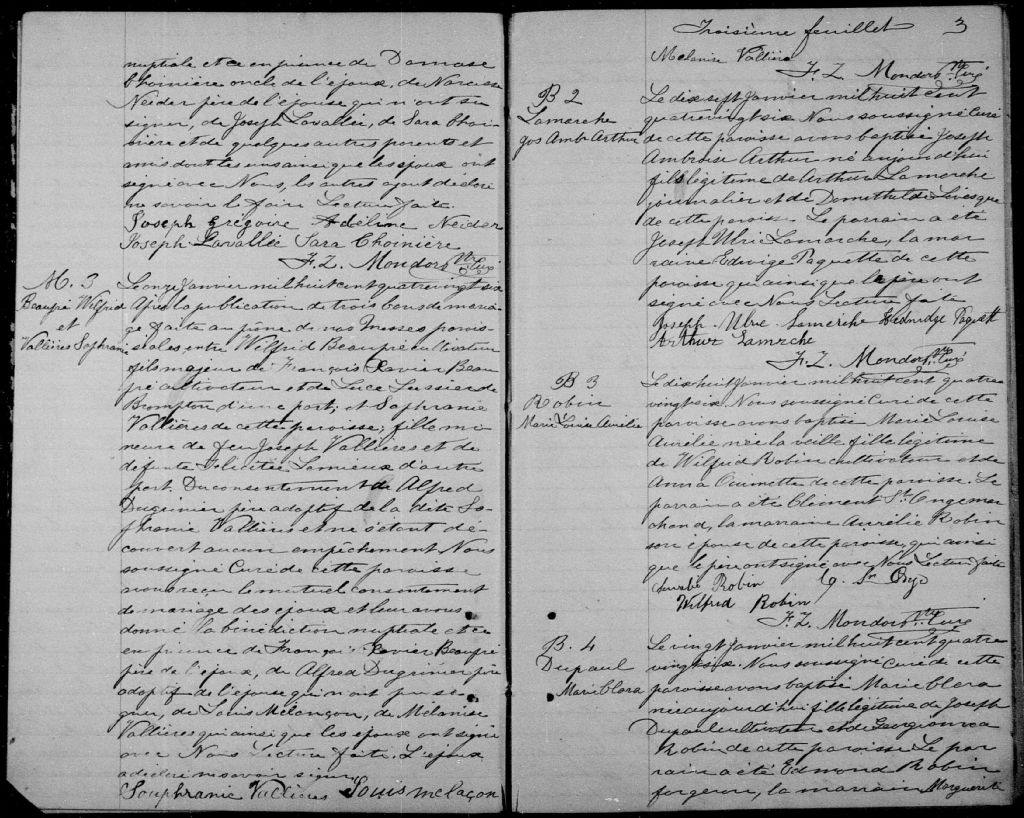 nuptiale et ce en présence de Damase
Choinière oncle de l'époux, de Narcisse
Neider père de l'épouse qui n'ont su
signer, de Joseph Lavallée, de Sara Choi-
nière et de quelques autres parents et
amis dont les uns ainsi que les époux ont
signé avec Nous, les autres ayant déclaré
ne savoir le faire Lecture faite
Joseph Grégoire Adéline Neider
Joseph Lavallée Sara Choinière
F. Z. Mondor Ptre Curé
M. 3
Beaupré Wilfrid
et
Vallières Sophranie
Le onze Janvier mil huit cent quatre vingt six
Après la publication de trois bans de maria-
ge faite au prône de nos Messes parois-
siales, entre Wilfrid Beaupré cultivateur
fils majeur de François Xavier Beau-
pré cultivateur et de Luce Lessier de
Brompton d'une part; et Sophranie
Vallières de cette paroisse; fille mi-
neure de feu Joseph Vallières et de
défunte Lemieux d'autre
part. Du consentement de Alfred
Dugrenier père adoptif de la dite So-
phranie Vallières et ne s'étant dé-
couvert aucun empêchement Nous
soussigné Curé de cette paroisse
avons reçu le mutuel consentement
de mariage des époux et leur avons
donné la bénédiction nuptiale et ce
en présence de François Xavier Beaupré
père de l'époux, de Alfred Dugrenier père
adoptif de l'épouse qui n'ont pu si-
gner, de Louis Mélançon, de Mélanise
Vallières qui ainsi que les époux ont signé
avec Nous Lecture faite. L'époux
a déclaré ne savoir signer
Souphranie Vallières Louis melaçon
Troisième feuillet 3
Melanise Vallière
F. Z. Mondor Ptre Curé
B 2
Lamarche
Jos Amb Arthur
Le dix sept Janvier mil huit cent
quatre vingt six Nous soussigné Curé
de cette paroisse avons baptisé Joseph
Ambroise Arthur né aujourd'hui
fils légitime de Arthur Lamarche
journalier et de Domethilde Lévesque
de cette paroisse. Le parrain a été
Joseph Ulric Lamarche, la mar-
raine Edwige Paquette de cette
paroisse qui ainsi que le père ont
signé avec Nous Lecture faite
Joseph Ulric Lamarche Hedwidge Paquett
Arthur Lamarche
F. Z. Mondor Ptre Curé
B 3
Robin
Marie Louise Aurélie
Le dix huit Janvier mil huit cent quatre
vingt six. Nous soussigné Curé de cette
paroisse avons baptisé Marie Louise
Aurélie née la veille fille légitime
de Wilfrid Robin cultivateur et de
Anna Ouimette de cette paroisse. Le
parrain a été Clément St. Onge mar-
chand, la marraine Aurélie Robin
son épouse de cette paroisse, qui ainsi
que le père ont signé avec Nous Lecture faite
Aurélie Robin C. St Onge
Wilfrid Robin
F. Z. Mondor Ptre Curé
B. 4
Dupaul
Marie Clara
Le vingt Janvier mil huit cent quatre
vingt six. Nous soussigné Curé de cette
paroisse avons baptisé Marie Clara
née aujourd'hui fille légitime de Joseph
Dupaul cultivateur et de Georgianna
Robin de cette paroisse Le par-
rain a été Edmond Robin
forgeron, la marraine Marguerite